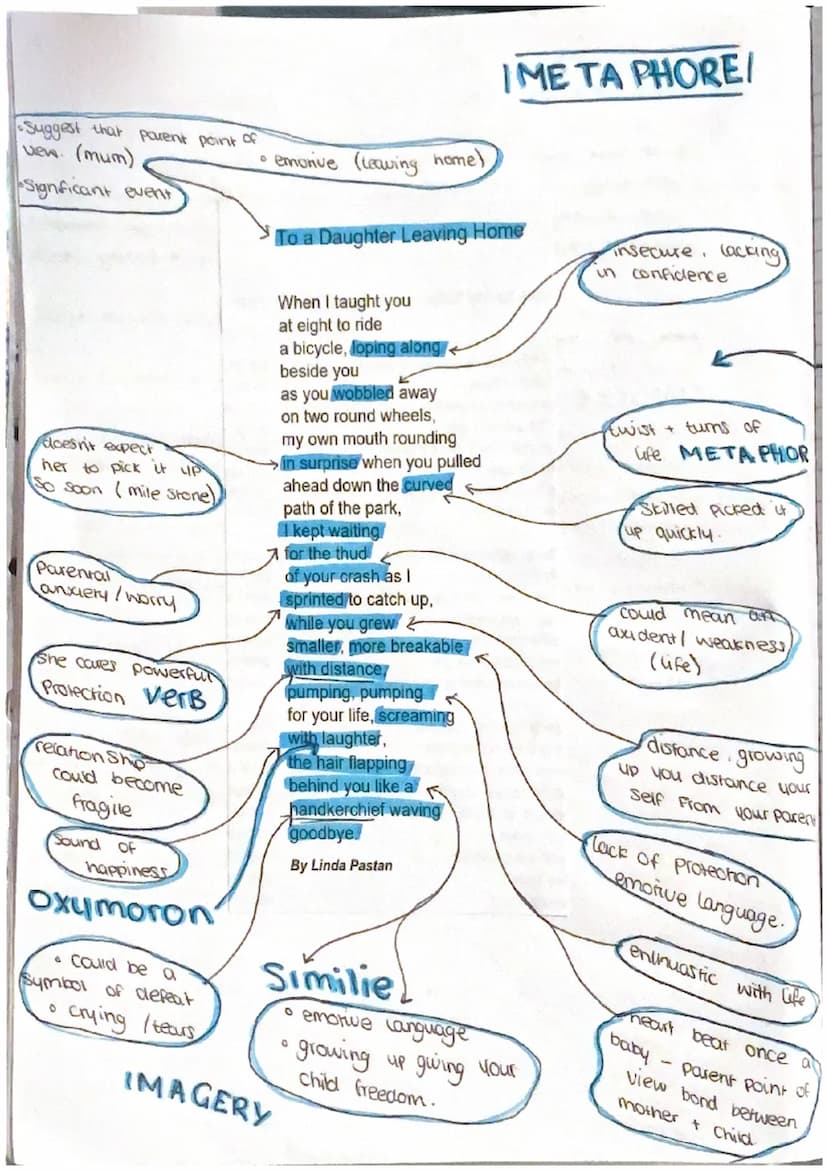 |METAPHORE|
•Suggest that parent point of
veiw. (mum)
• emotive (leaving home)
•Signficant event
To a Daughter Leaving Home
insecure, lacking
in confidence
When I taught you
at eight to ride
a bicycle, loping along
beside you
as you wobbled away
on two round wheels,
my own mouth rounding
in surprise when you pulled
ahead down the curved
path of the park,
I kept waiting
for the thud
of your crash as I
sprinted to catch up,
while you grew
smaller, more breakable
with distance,
pumping, pumping
for your life, screaming
with laughter,
the hair flapping
behind you like a
handkerchief waving
goodbye.
By Linda Pastan
doesn't expect
her to pick it up
so soon (mile stone)
Parental
anxiety / worry
She cares powerful
Protection VERB
relationship
could become
fragile
Sound of
happiness
OXYMORON
• could be a
symbol of defeat
• crying / tears
IMAGERY
Similie
• emotive language
• growing up giving your
child freedom.
twist + turns of
life METAPHOR
Skilled picked it
up quickly.
could mean an
accident / weakness
(life)
distance, growing
up you distance your
self from your parent
lack of protection
emotive language.
enthuastic with life
heart beat once a
baby - parent point of
view bond between
mother + child